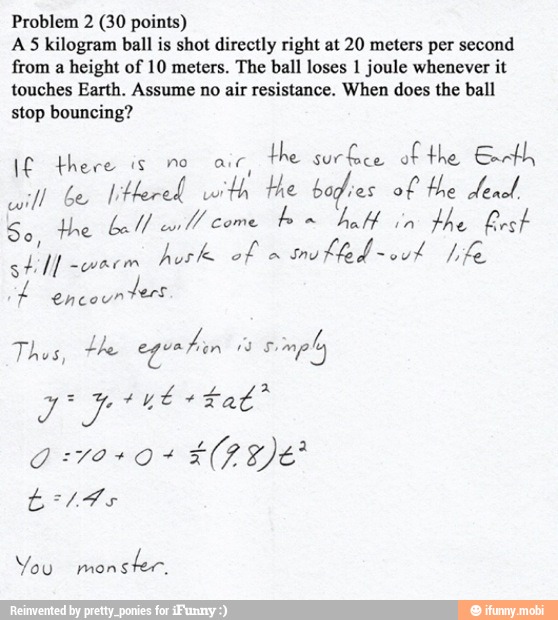 Problem 2 (30 points)
A 5 kilogram ball is shot directly right at 20 meters per second
from a height of 10 meters. The ball loses 1 joule whenever it
touches Earth. Assume no air resistance. When does the ball
stop bouncing?
If there is no air, the surface of the Earth
will be littered with the bodies of the dead.
So, the ball will come to a halt in the first
still-warm husk of a snuffed-out life
it encounters.
Thus, the equation is simply
y = y₀ + v₀t + ½at²
0 = -10 + 0 + ½(9.8)t²
t = 1.4s
You monster.
Reinvented by pretty_ponies for iFunny :)
ifunny.mobi